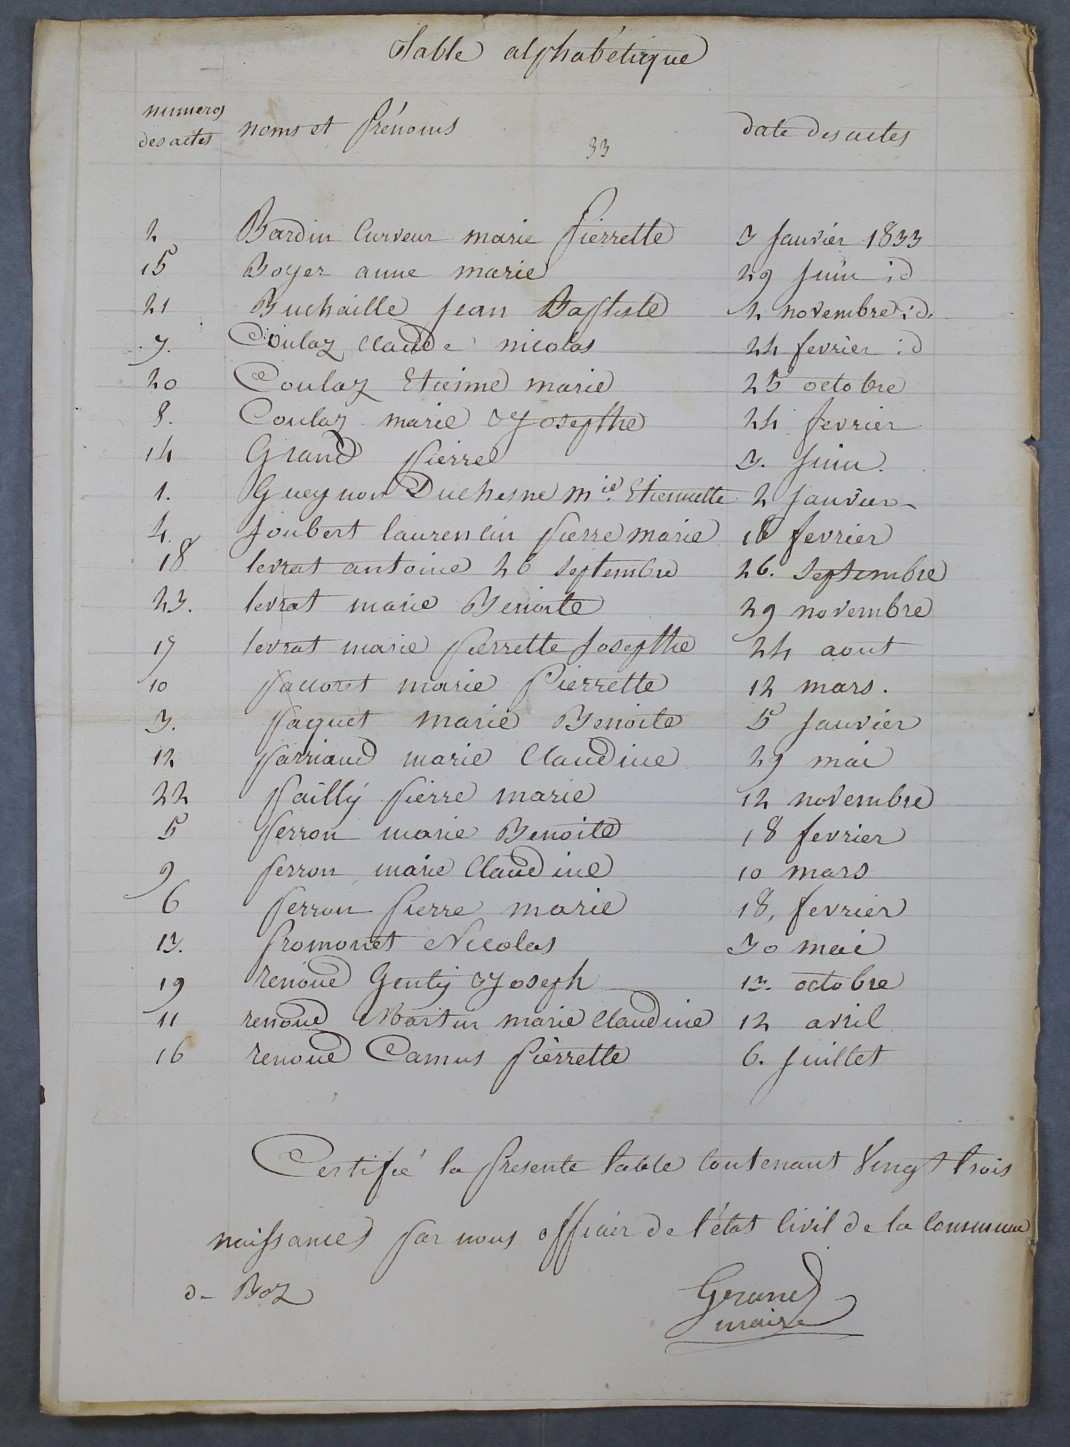 Table alphabétique
numeros des actes noms et Prénoms date des actes
33
2 Bardin Curveur marie Pierrette 3 Janvier 1833
15 Boyer anne marie 29 Juin id
21 Buchaille Jean Baptiste 2 novembre id.
7. Coulaz Claude nicolas 24 fevrier id
20 Coulaz Etienne marie 25 octobre
8. Coulaz marie Josepthe 24 fevrier
14 Grand Pierre 3. Juin.
1. Gueynon Duchesne mie Etiennette 2 Janvier
4. Joubert laurencin Pierre marie 16 fevrier
18 levrat antoine 26 septembre 26. Septembre
23. levrat marie Benoite 29 novembre
17 levrat marie Pierrette Josepthe 24 aout
10 Paccoret marie Pierrette 12 mars.
3. Paquet marie Benoite 5 Janvier
12 Parriaud marie Claudine 29 mai
22 Pailly Pierre marie 12 novembre
5 Perron marie Benoite 18 fevrier
9 Perron marie Claudine 10 mars
6 Perron Pierre marie 18, fevrier
13. Promonet Nicolas 30 mai
19 renoud Genty Joseph 13. octobre
11 renoud Martin marie Claudine 12 avril
16 renoud Camus Pierrette 6. Juillet
Certifié la Presente table Contenant Vingt trois
naissances Par nous officier de l'état Civil de la Commune
de Boz
Grand
maire